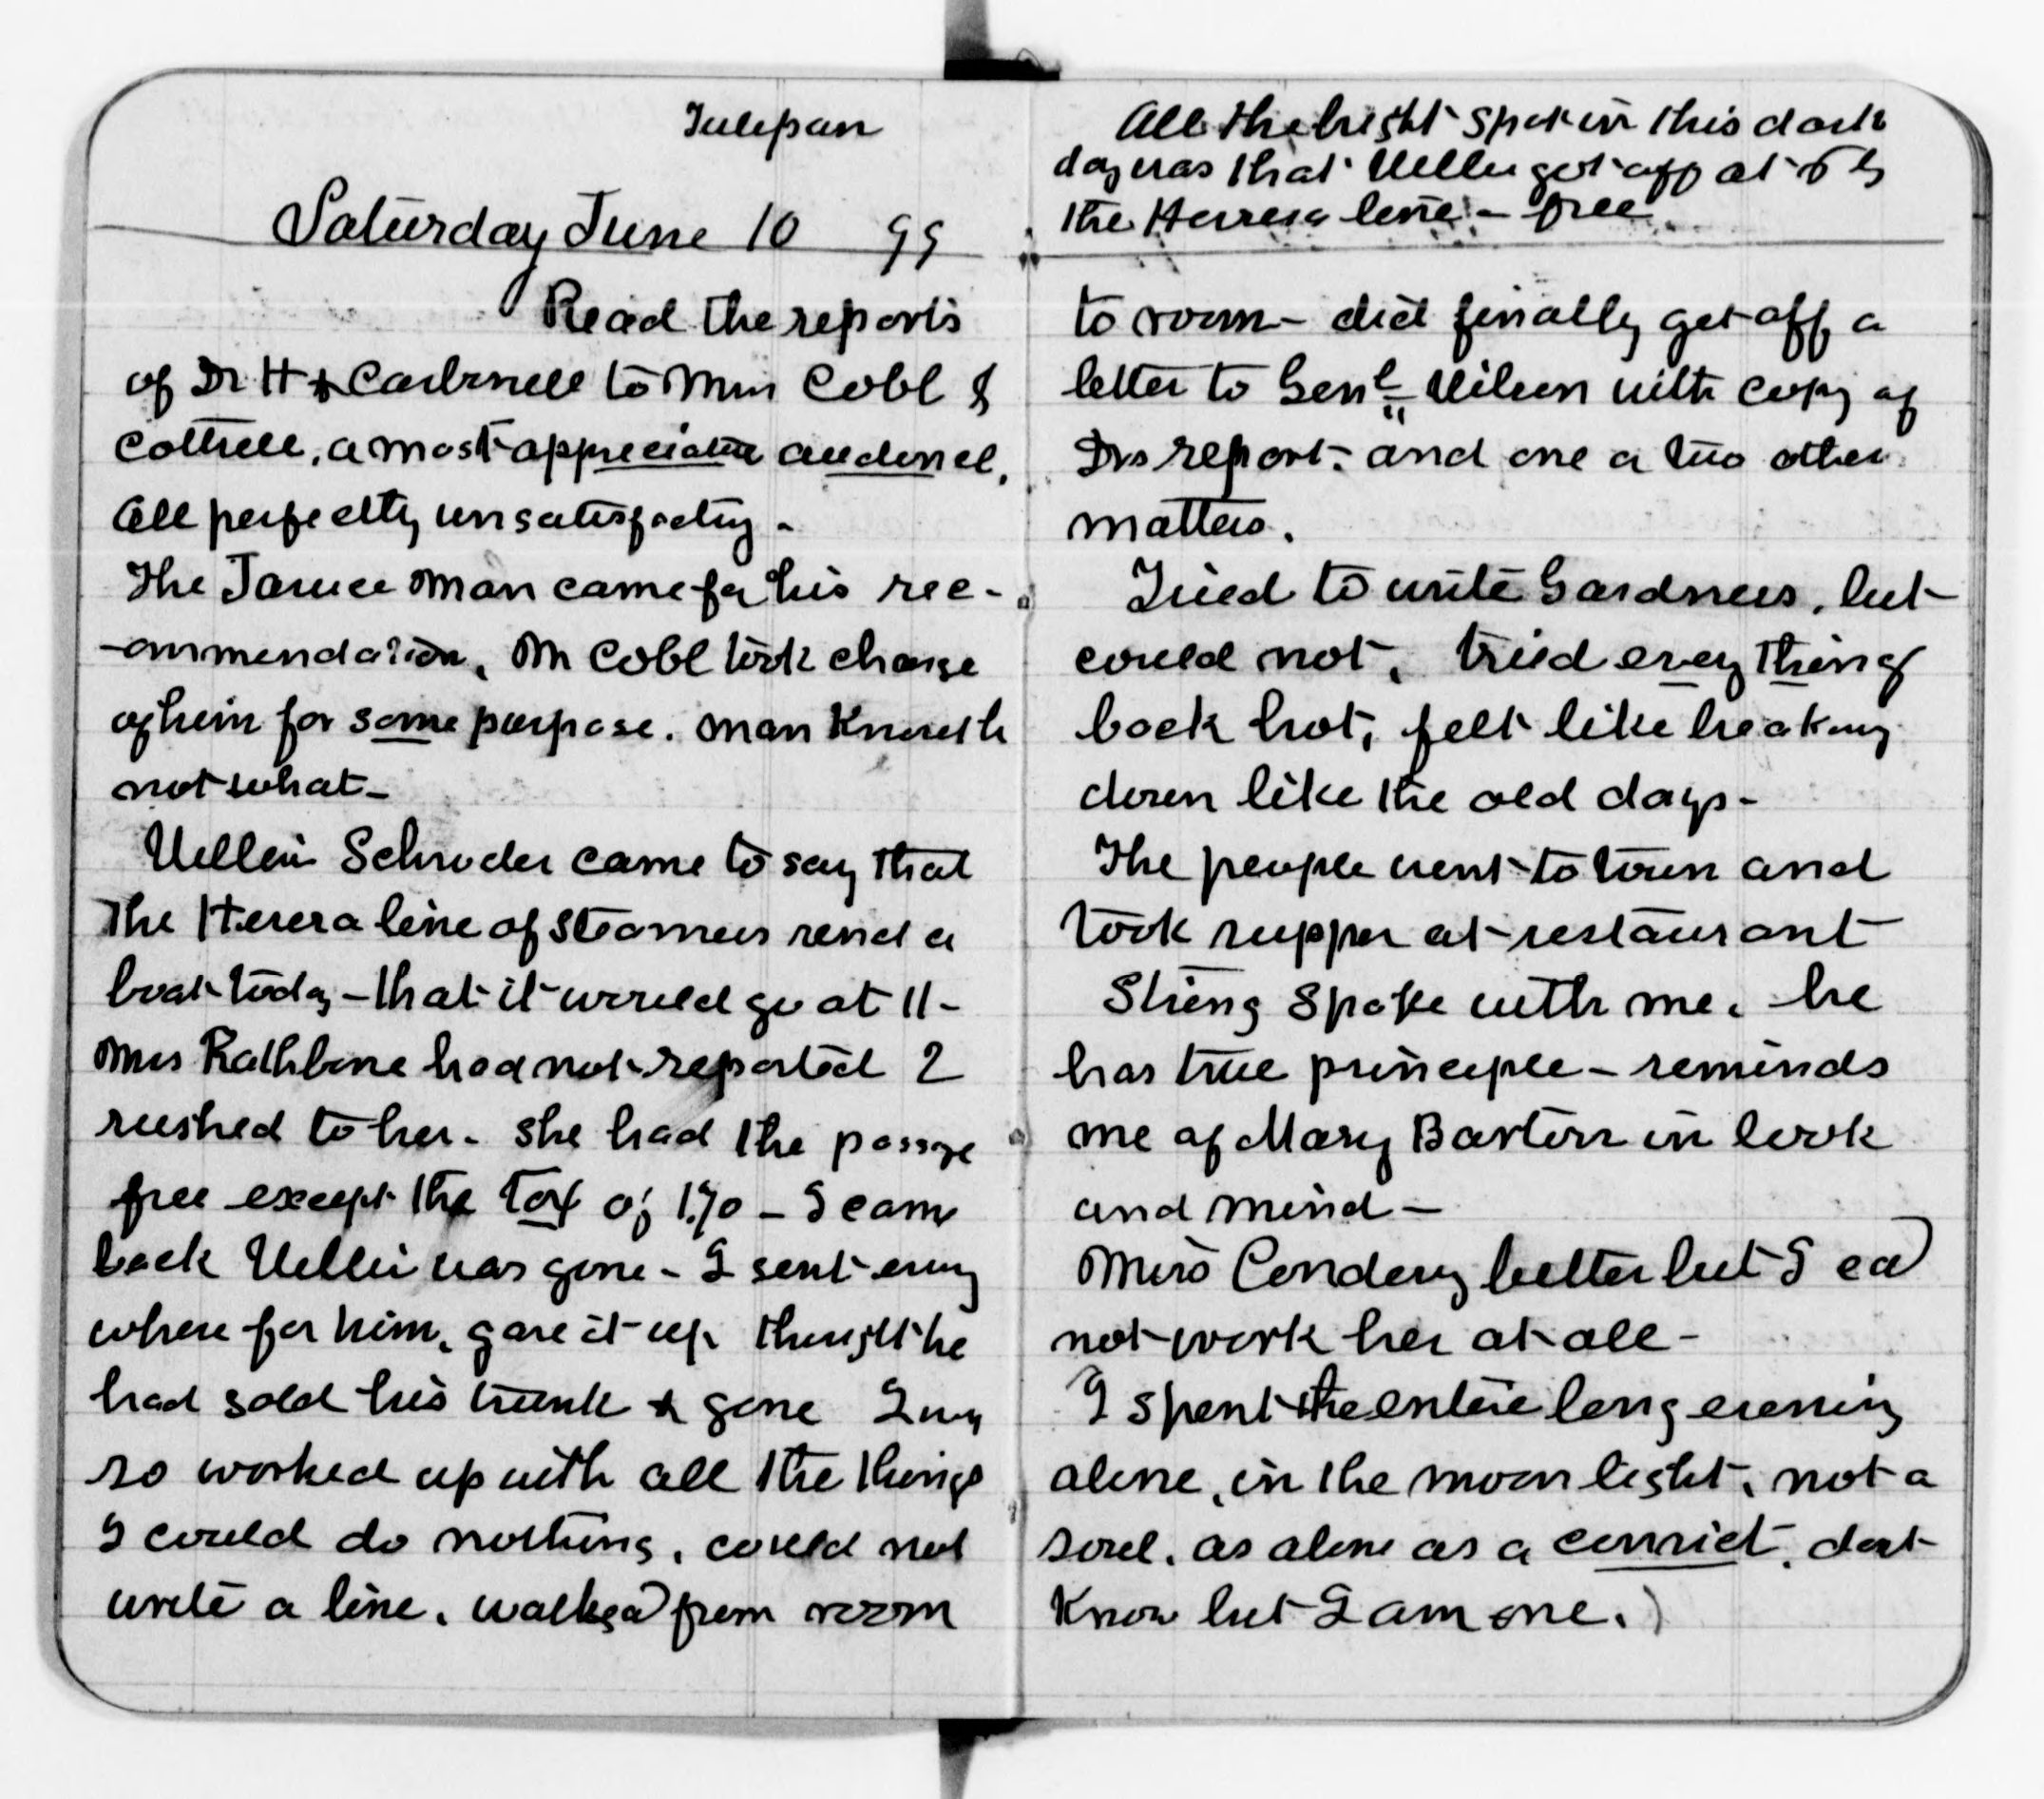 Tulepan
Saturday June 10 99
Read the reports
of Dr H & Carbonell to Mrss Cobb &
Cottrell, a most appreciative audience,
All perfectly unsatisfactory -
The man came for his rec-
-ommendation, Mr Cobb took charge
of him for some purpose. man Knoweth
not what -
Schroder came to say that
The Herera line of steamers send a
boat today - that it would go at 11 -
Mrs Rathbone had not reported I
rushed to her. she had the passge
free except the tax of 1.70 - I came
back was gone - I sent every
where for him, gave it up thought he
had sold his trunk & gone I was
so worked up with all the things
I could do nothing, could not
write a line, walked from room
All the bright spot in this dark
day was that got off at 5 by
the Herrera line - free
to room - did finally get off a
letter to Genl Wilson with copy of
Drs report - and one or two other
matters.
Tried to write Gardners, but
could not, tried every thing
back hot, felt like breaking
down like the old days -
The people went to town and
took supper at restaurant
Strong Spoke with me. he
has true principle - reminds
me of Mary Barton in look
and mind -
Miss better but I cd
not work her at all -
I spent the entire long evening
alone, in the moon light, not a
soul. as alone as a convict. dont
Know but I am one.)